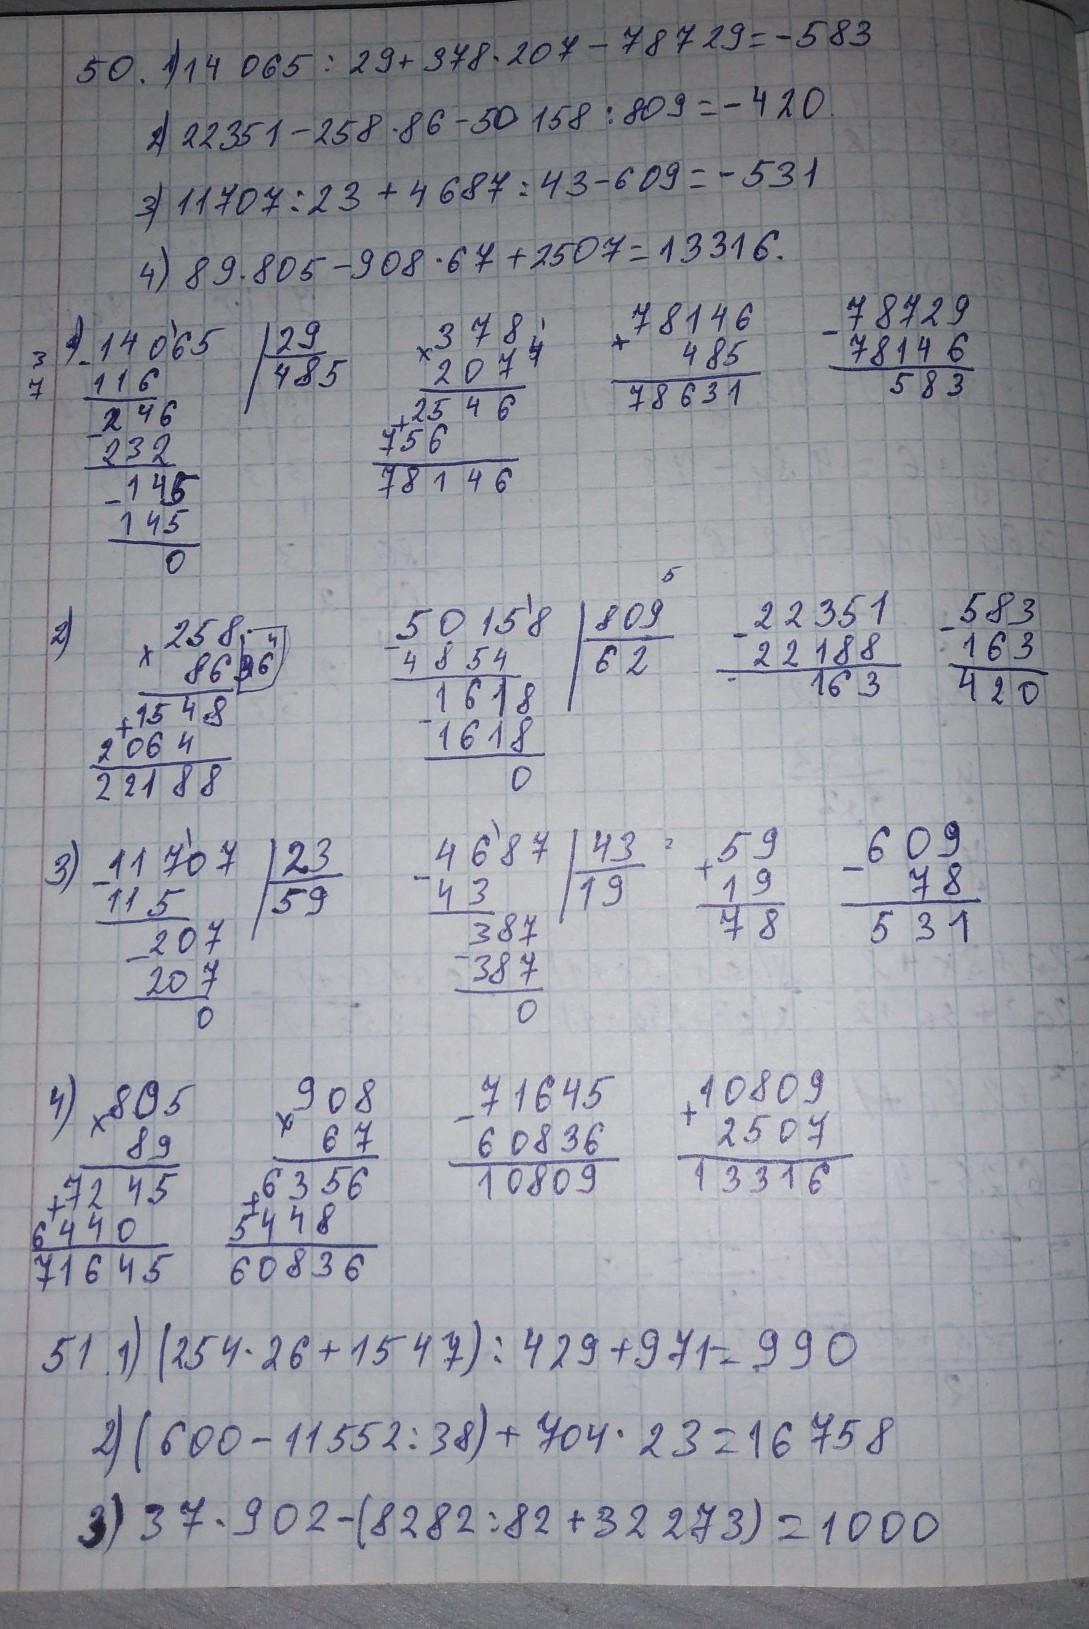 50. 1) 14 065 : 29 + 378 · 207 - 78729 = -583
2) 22351 - 258 · 86 - 50 158 : 809 = -420.
3) 11707 : 23 + 4687 : 43 - 609 = -531
4) 89 · 805 - 908 · 67 + 2507 = 13316.
1) - 14065 | 29 × 378 + 78146 - 78729
3 116 485 207 4 485 78146
7 - 246 + 2546 78631 583
- 232 756
- 145 78146
145
0
5
2) × 258 · 4 - 50158 | 809 - 22351 - 583
86 96 4854 62 22188 163
+ 1548 - 1618 163 420
2064 1618
22188 0
3) - 11707 | 23 - 4687 | 43 + 59 - 609
115 59 43 19 19 78
- 207 - 387 78 531
207 387
0 0
4) × 805 × 908 - 71645 + 10809
89 67 60836 2507
+ 7245 + 6356 10809 13316
6440 5448
71645 60836
51. 1) (254 · 26 + 1547) : 429 + 971 = 990
2) (600 - 11552 : 38) + 704 · 23 = 16758
3) 37 · 902 - (8282 : 82 + 32273) = 1000